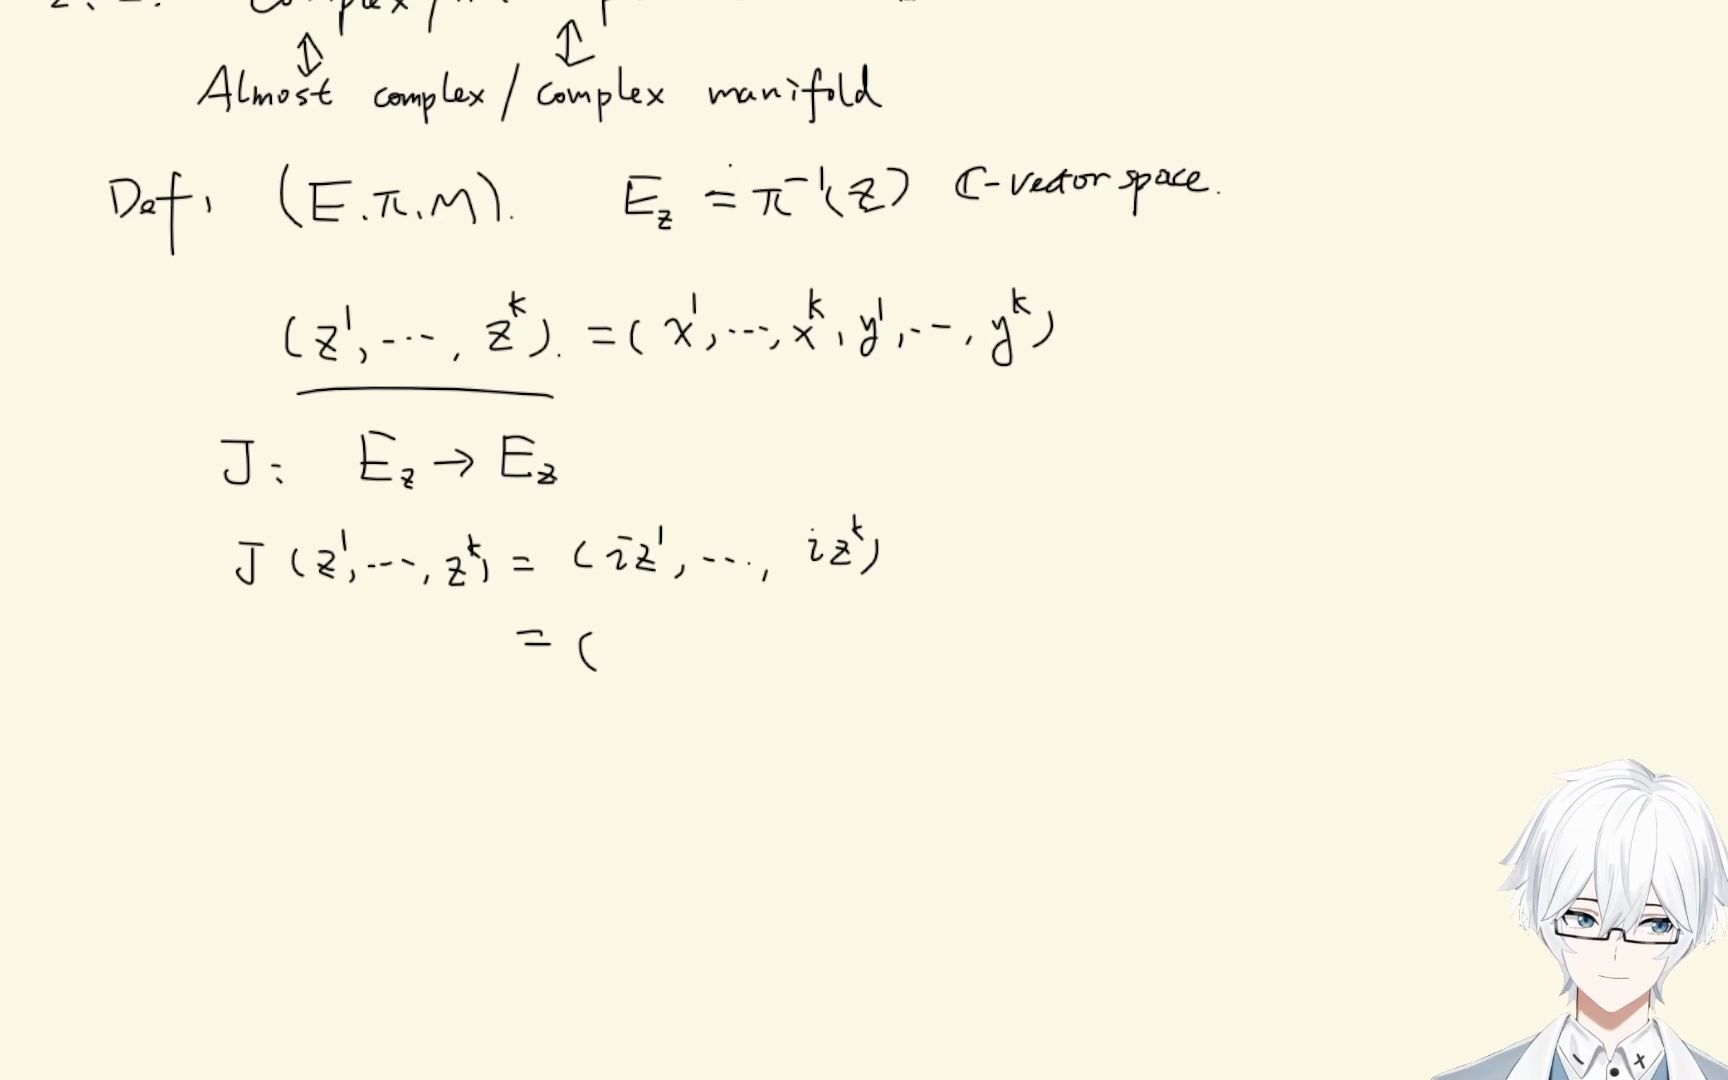 Almost complex / complex manifold
Def: (E.π.M). E_z ≐ π⁻¹(z) ℂ-vector space.
(z¹, ⋯, zᵏ). = (x¹, ⋯, xᵏ, y¹, ⋯, yᵏ)
J: E_z → E_z
J (z¹, ⋯, zᵏ) = (iz¹, ⋯, izᵏ)
= (